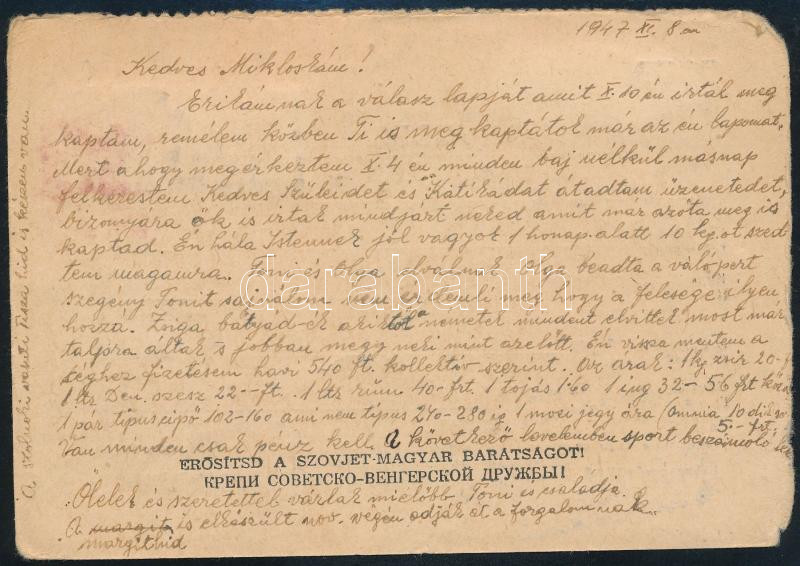 1947 XI. 8.án
Kedves Mikloskám!
Erikámnak a válasz lapját amit X. 10 én irtál meg
kaptam, remélem közben Ti is meg kaptátok már az én lapomat.
Mert ahogy megérkeztem X. 4 én minden baj nélkül másnap
felkerestem Kedves Szüleidet és Katikádat átadtam üzenetedet,
bizonyára ők is irtak mindjart neked amit már azóta meg is
kaptad. Én hála Istennek jól vagyok 1 honap alatt 10 kg.ot szed
tem magamra. Toni és Olga elválnak Olga beadta a váló pert
szegény Tonit sajnálom nem érdemli meg hogy a felesége ilyen
hozzá. Zsiga bátyád-ék akiktől a németek mindent elvittek most már
talpra álltak s jobban megy neki mint azelőtt. Én vissza mentem a
céghez fizetésem havi 540 ft. kollektiv szerint. Az árak: 1 kg zsir 20.-f
1 lts Den. szesz 22.-ft. 1 lts rum 40.-frt. 1 tojás 1.60 1 ing 32-56 frt
1 par tipus cipő 102-160 ami nem tipus 240-280 ig 1 mozi jegy ára (Omnia 10
5.-frt.
Van minden csak penz kell. A következő levelemben sport beszámoló
ERŐSÍTSD A SZOVJET-MAGYAR BARÁTSÁGOT!
КРЕПИ СОВЕТСКО-ВЕНГЕРСКОЙ ДРУЖБЫ!
Ölelek és szeretettel várlak mielőbb Toni és családja.
A margit is elkészült nov. végén adják át a forgalomnak.
margithid
A szolnoki vasuti Tisza hid is készen van.
darabanth